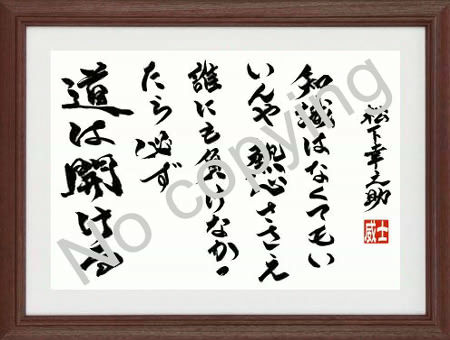 松下幸之助
威士
知識はなくてもい
いんや 熱心ささえ
誰にも負けなかっ
たら必ず
道は開ける
No copying